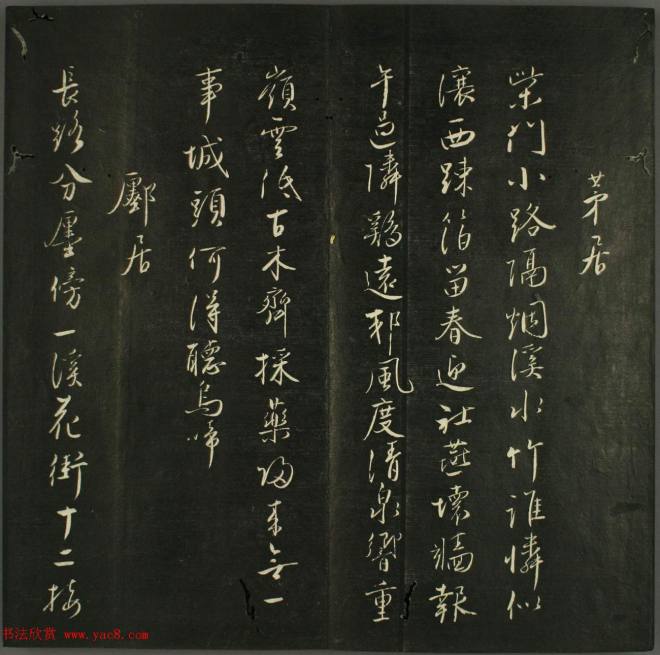 茅居
柴門小路隔烟溪水竹誰憐似
瀼西疎箔留春迎社燕壞牆報
午過隣鷄遠邨風度清泉響重
嶺雲低古木齊採藥歸来無一
事城頭何得聽烏啼
鄽居
長路分廛傍一溪花街十二接
书法欣赏 www.yac8.com